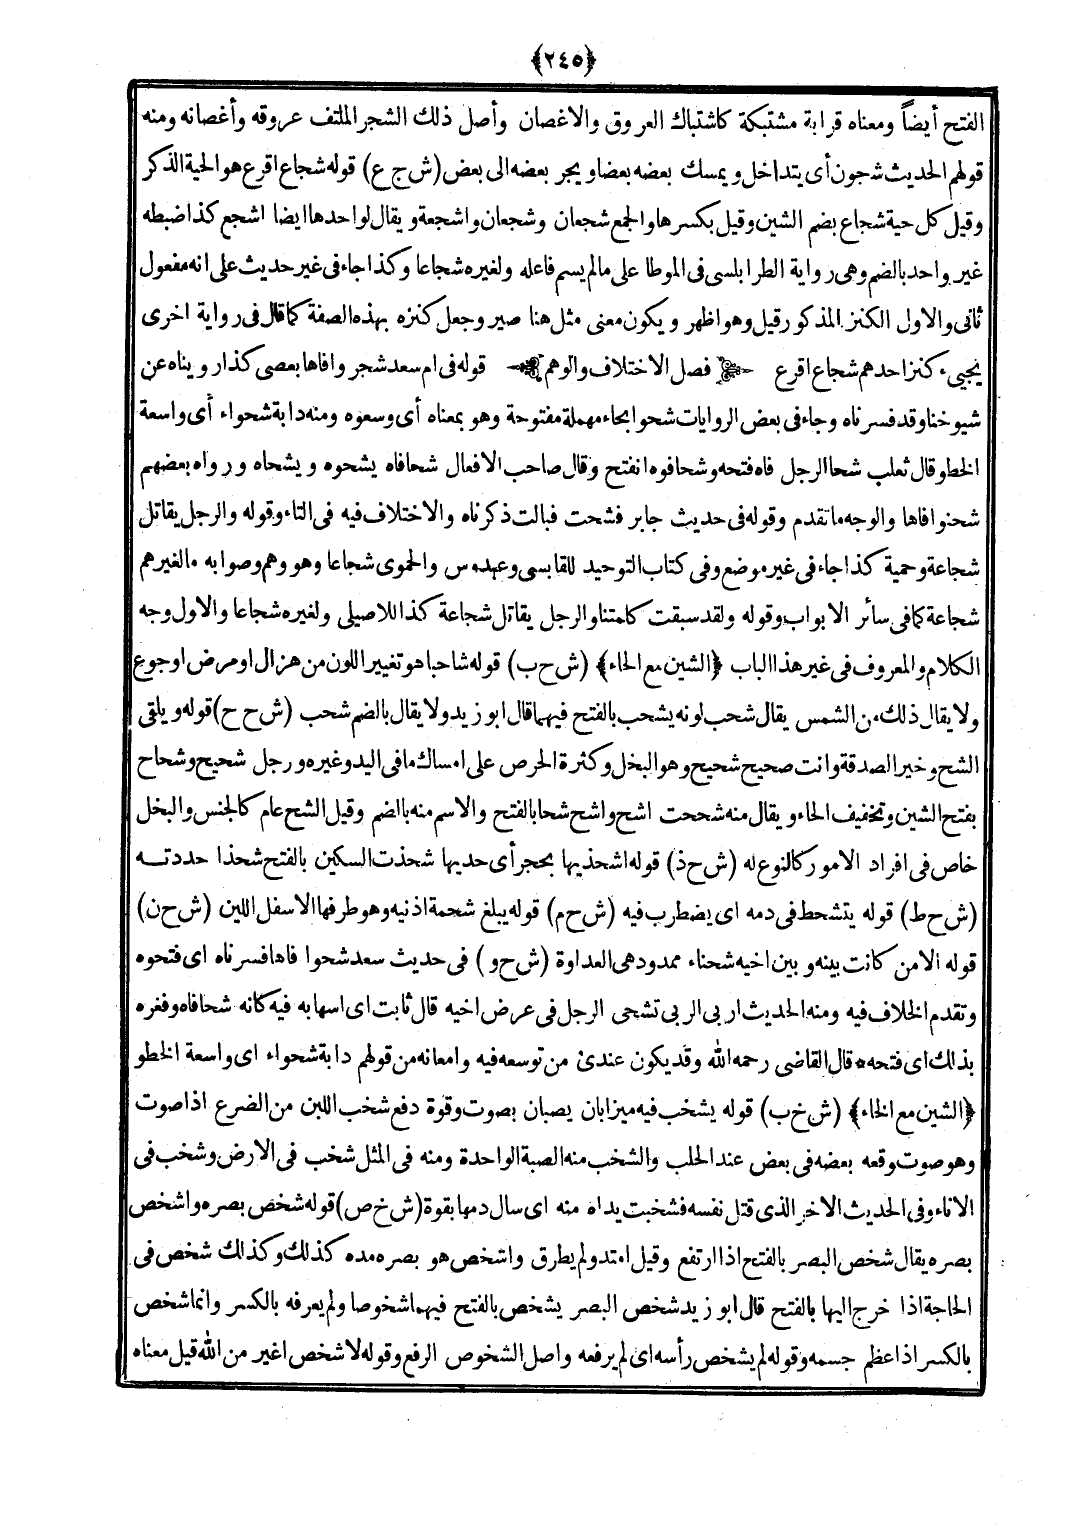 ﴿٢٤٥﴾
الفتح أيضاً ومعناه قرابة مشتبكة كاشتباك العروق والاغصان وأصل ذلك الشجر الملتف عروقه وأغصانه ومنه
قولهم الحديث شجون أى يتداخل ويمسك بعضه بعضا ويجر بعضه الى بعض (ش ج ع) قوله شجاع اقرع هو الحية الذكر
وقيل كل حية شجاع بضم الشين وقيل بكسرها والجمع شجعان وشجعان واشجعة ويقال لواحدها ايضا اشجع كذا ضبطه
غير واحد بالضم وهى رواية الطرابلسى فى الموطا على مالم يسم فاعله ولغيره شجاعا وكذا جاء فى غير حديث على انه مفعول
ثانى والاول الكنز المذكور قيل وهو اظهر ويكون معنى مثل هنا صير وجعل كنزه بهذه الصفة كما قال فى رواية اخرى
يجىء كنز احدهم شجاع اقرع فصل الاختلاف والوهم قوله فى ام سعد شجر وافاها بعصى كذا رويناه عن
شيوخنا وقد فسرناه وجاء فى بعض الروايات شحوا بحاء مهملة مفتوحة وهو بمعناه أى وسعوه ومنه دابة شحواء أى واسعة
الخطو قال ثعلب شحا الرجل فاه فتحه وشحا فوه انفتح وقال صاحب الافعال شحا فاه يشحوه ويشحاه ورواه بعضهم
شحنوا فاها والوجه ما تقدم وقوله فى حديث جابر فشحت فبالت ذكرناه والاختلاف فيه فى التاء وقوله والرجل يقاتل
شجاعة وحمية كذا جاء فى غير موضع وفى كتاب التوحيد للقابسى وعبدوس والحموى شجاعا وهو وهم وصوابه ما لغيرهم
شجاعة كما فى سائر الابواب وقوله ولقد سبقت كلمتنا والرجل يقاتل شجاعة كذا للاصيلى ولغيره شجاعا والاول وجه
الكلام والمعروف فى غير هذا الباب ﴿الشين مع الحاء﴾ (ش ح ب) قوله شاحبا هو تغيير اللون من هزال او مرض او جوع
ولا يقال ذلك من الشمس يقال شحب لونه يشحب بالفتح فيهما قال ابو زيد ولا يقال بالضم شحب (ش ح ح) قوله ويلقى
الشح وخير الصدقة وانت صحيح شحيح وهو البخل وكثرة الحرص على امساك ما فى اليد وغيره ورجل شحيح وشحاح
بفتح الشين وتخفيف الحاء ويقال منه شححت اشح واشح شحا بالفتح والاسم منه بالضم وقيل الشح عام كالجنس والبخل
خاص فى افراد الامور كالنوع له (ش ح ذ) قوله اشحذيها بحجر أى حديها شحذت السكين بالفتح شحذا حددته
(ش ح ط) قوله يتشحط فى دمه اى يضطرب فيه (ش ح م) قوله يبلغ شحمة اذنيه وهو طرفها الاسفل اللين (ش ح ن)
قوله الا من كانت بينه وبين اخيه شحناء ممدود هى العداوة (ش ح و) فى حديث سعد شحوا فاها فسرناه اى فتحوه
وتقدم الخلاف فيه ومنه الحديث اربى الربى تشحى الرجل فى عرض اخيه قال ثابت اى اسهابه فيه كانه شحا فاه وفغره
بذلك اى فتحه * قال القاضى رحمه الله وقد يكون عندى من توسعه فيه وامعانه من قولهم دابة شحواء اى واسعة الخطو
﴿الشين مع الخاء﴾ (ش خ ب) قوله يشخب فيه ميزابان يصبان بصوت وقوة دفع شخب اللبن من الضرع اذا صوت
وهو صوت وقعه بعضه فى بعض عند الحلب والشخب منه الصبة الواحدة ومنه فى المثل شخب فى الارض وشخب فى
الاناء وفى الحديث الاخر الذى قتل نفسه فشخبت يداه منه اى سال دمها بقوة (ش خ ص) قوله شخص بصره واشخص
بصره يقال شخص البصر بالفتح اذا ارتفع وقيل امتد ولم يطرق واشخص هو بصره مده كذلك وكذلك شخص فى
الحاجة اذا خرج اليها بالفتح قال ابو زيد شخص البصر يشخص بالفتح فيهما شخوصا ولم يعرفه بالكسر وانما شخص
بالكسر اذا عظم جسمه وقوله لم يشخص رأسه اى لم يرفعه واصل الشخوص الرفع وقوله لا شخص اغير من الله قيل معناه